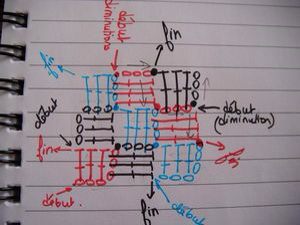 début
diminutions
fin
fin
début
début
(diminution)
fin
fin
début.
fin
début